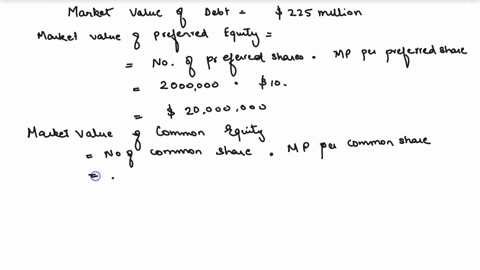 Market Value of Debt = $225 million
Market value of preferred Equity =
= No. of preferred shares . MP per preferred share
= 2000,000 . $10.
= $20,000,000
Market Value of Common Equity
= No of common share . MP per common share
= .